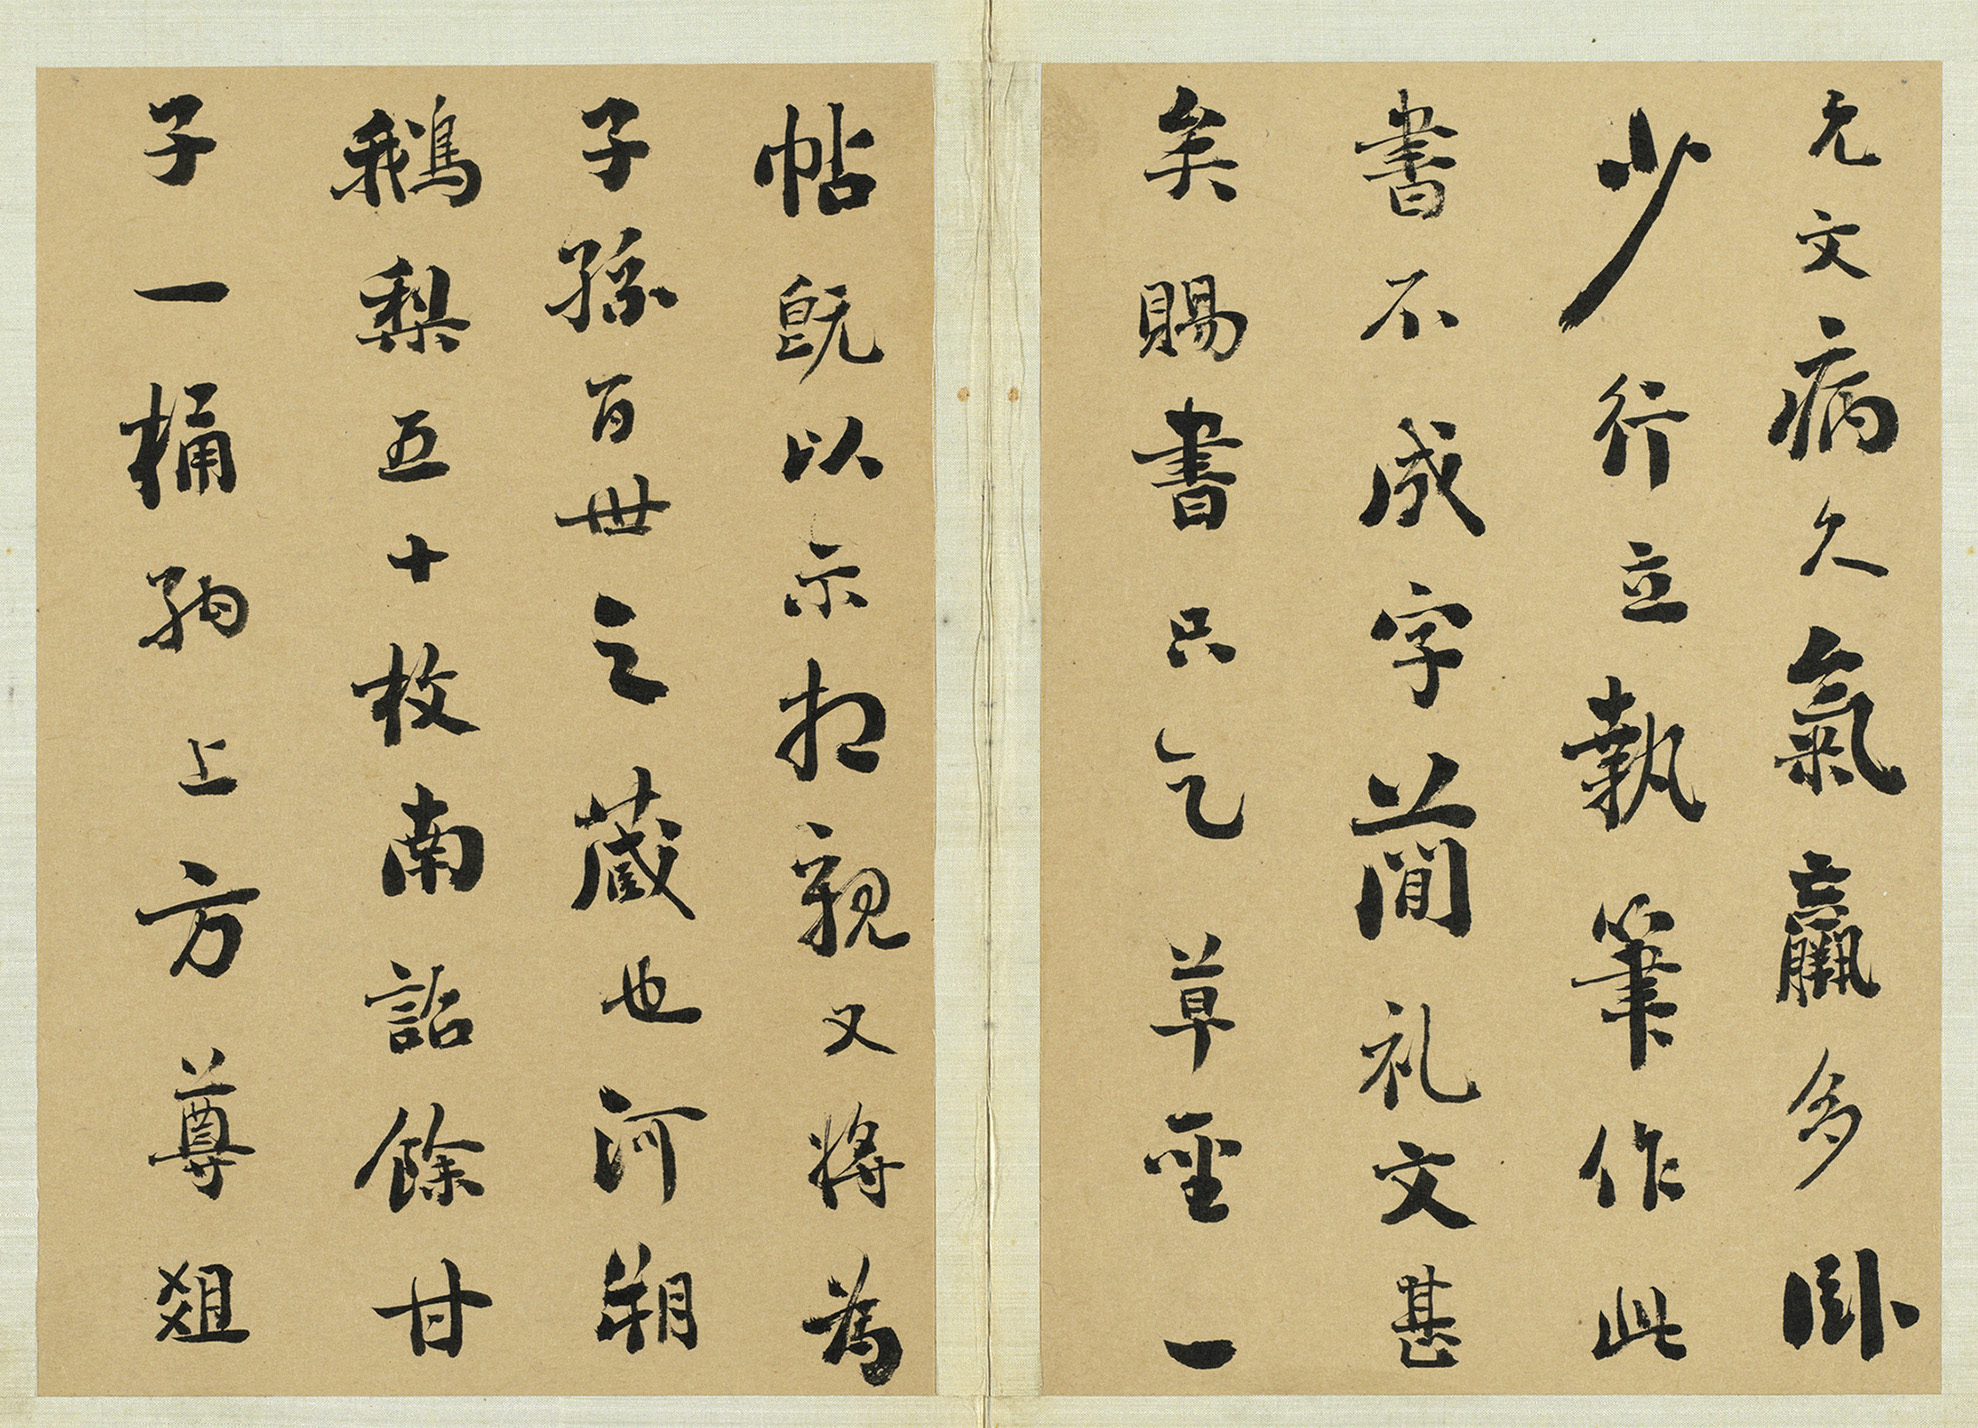 允文病久氣羸多卧
少行立執筆作此
書不成字蕳礼文甚
矣賜書只乞草聖一
帖既以示相親又将為
子孫百世之蔵也河朔
鵝梨五十枚南詔餘甘
子一桶納上方尊俎